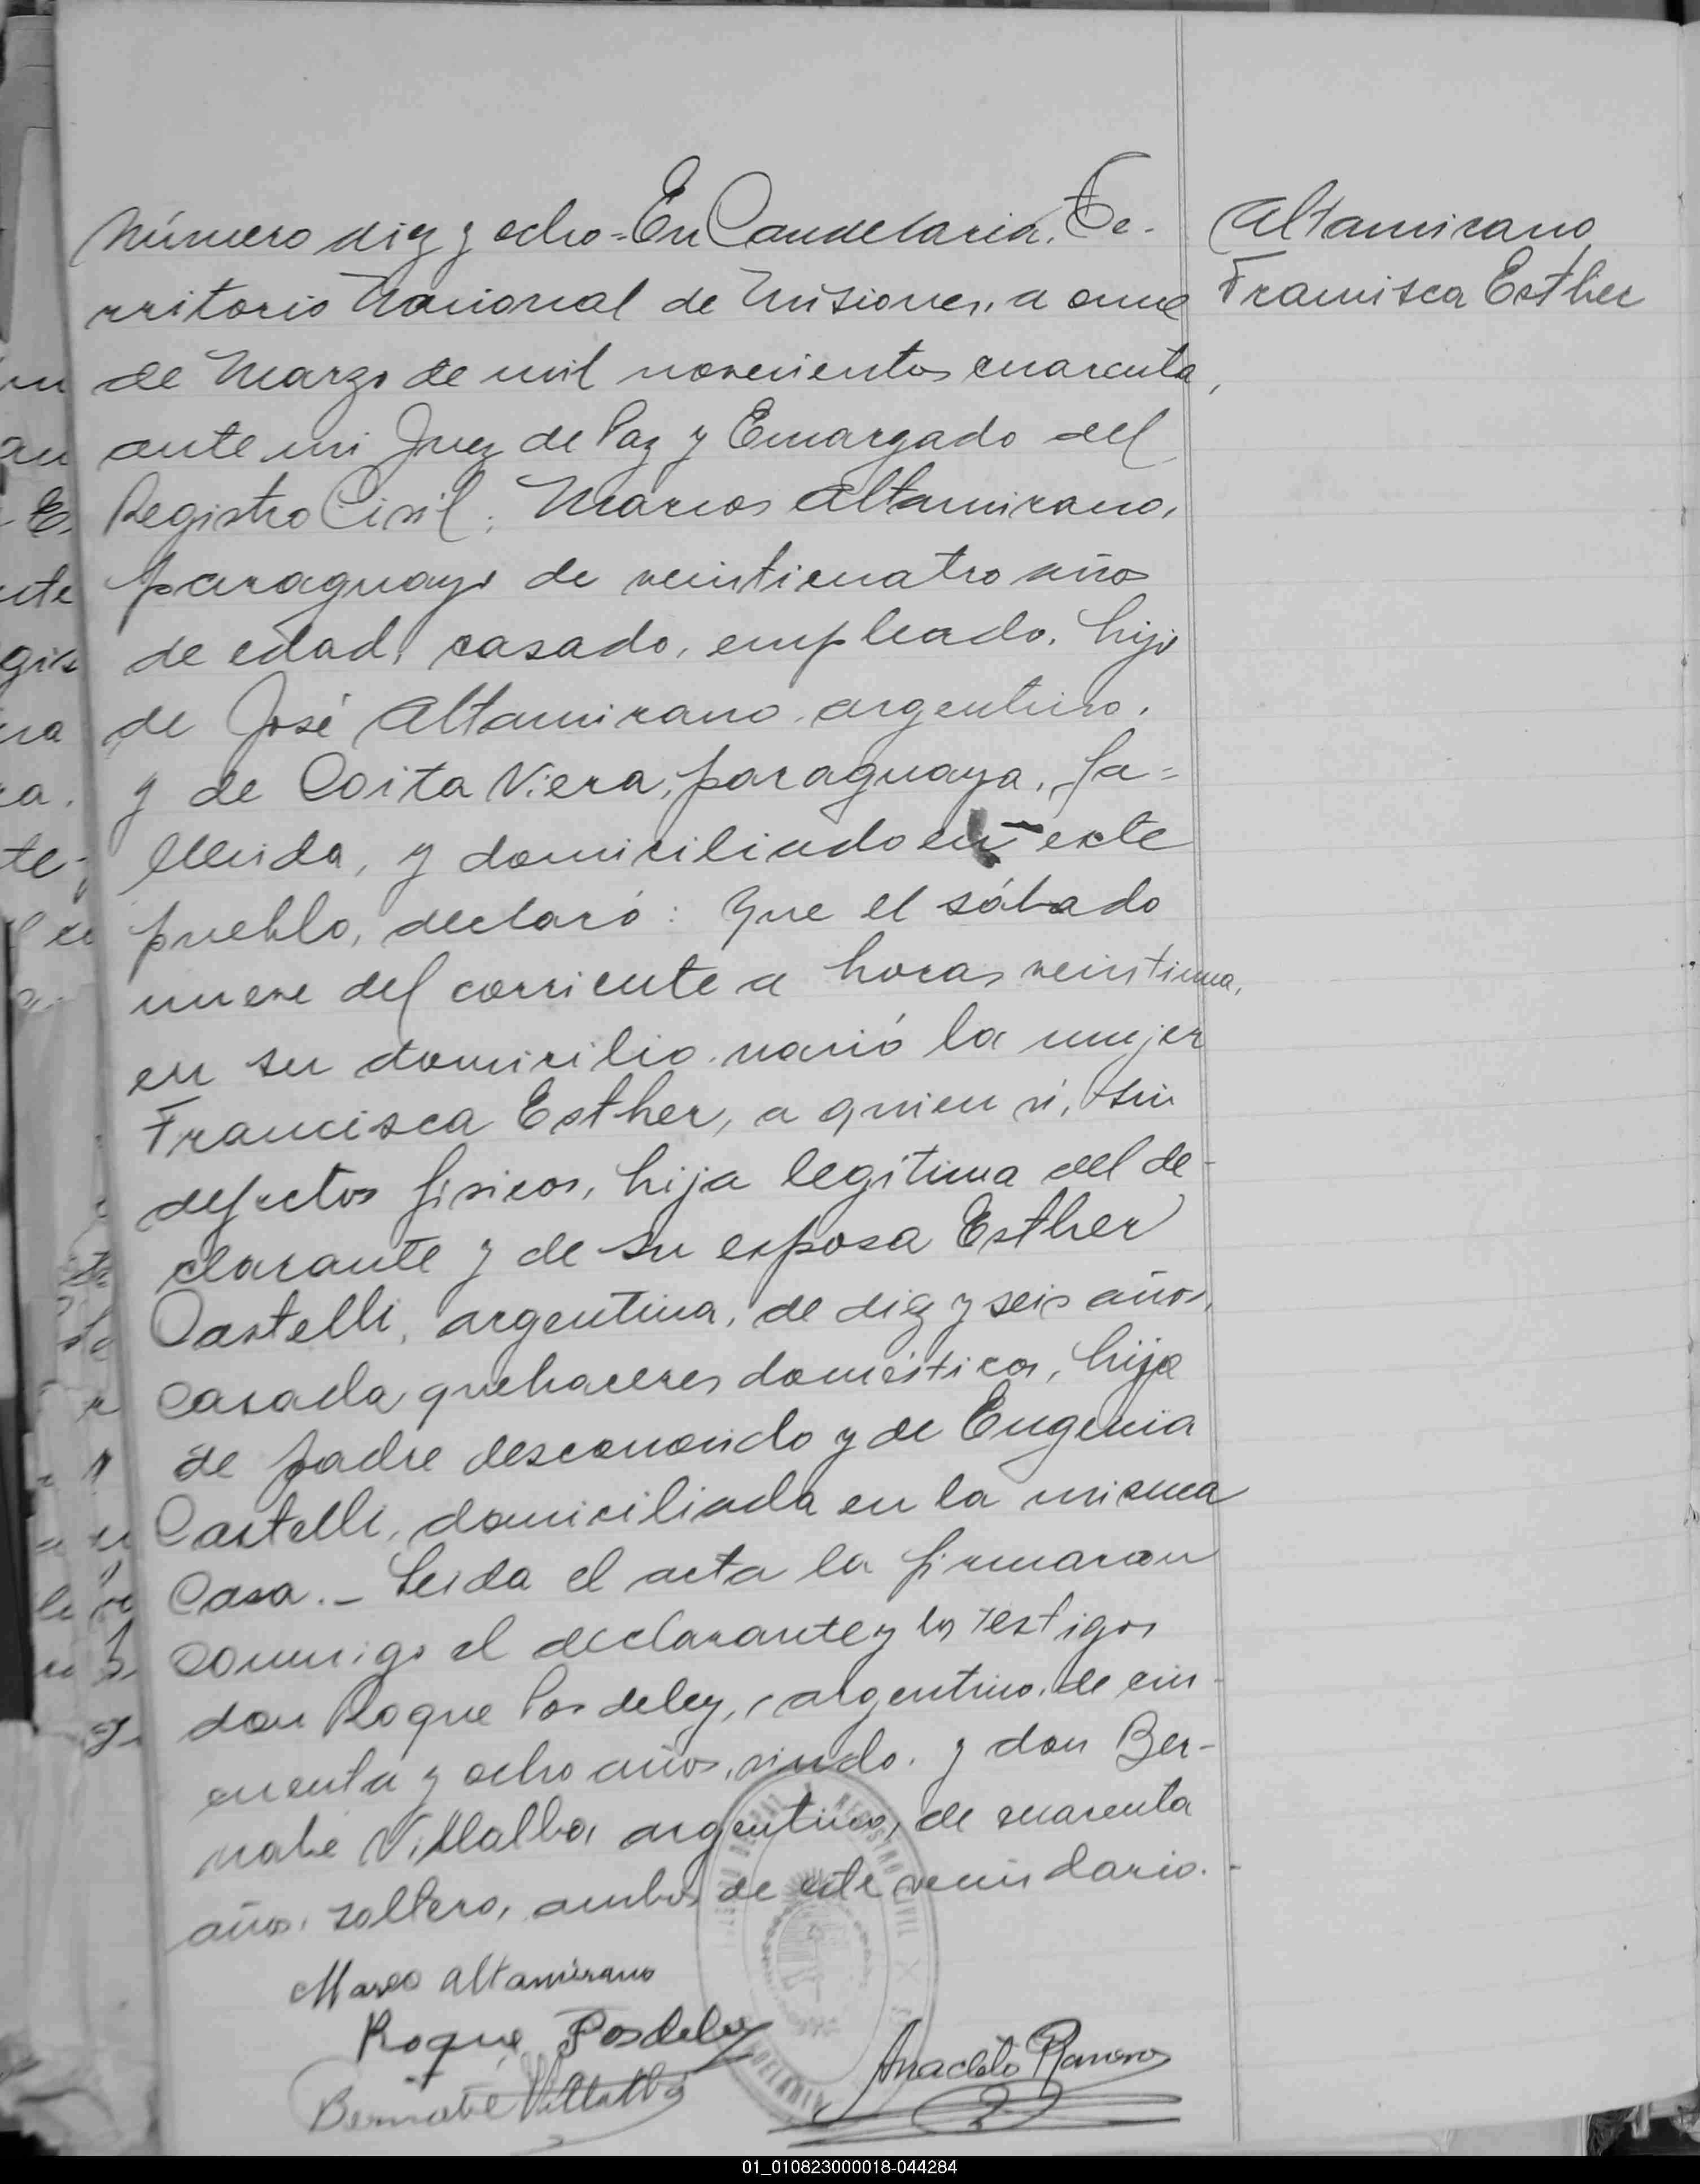 Número diez y ocho = En Candelaria, Te-
rritorio Nacional de Misiones, a once
de Marzo de mil novecientos cuarenta,
ante mi Juez de Paz y Encargado del
Registro Civil; Marcos Altamirano,
paraguayo de veinticuatro años
de edad, casado, empleado, hijo
de José Altamirano, argentino,
y de Coita Viera, paraguaya, fa=
llecida, y domiciliado en este
pueblo, declaró: Que el sábado
nueve del corriente a horas veintiuna,
en su domicilio, nació la mujer
Francisca Esther, a quien ví, sin
defectos fisicos, hija legítima del de-
clarante y de su esposa Esther
Castelli, argentina, de diez y seis años,
casada, quehaceres domésticos, hija
de padre desconocido y de Eugenia
Castelli, domiciliada en la misma
casa.- Leida el acta la firmaron
conmigo el declarante y los testigos
don Roque Posdeley, argentino, de cin-
cuenta y ocho años, viudo, y don Ber-
nabe Villalba, argentino, de cuarenta
años, soltero, ambos de este vecindario.-
Altamirano
Francisca Esther
Marco Altamirano
Roque Posdeley
Bernabé Villalba
Anacleto Romero
REGISTRO CIVIL
01_010823000018-044284